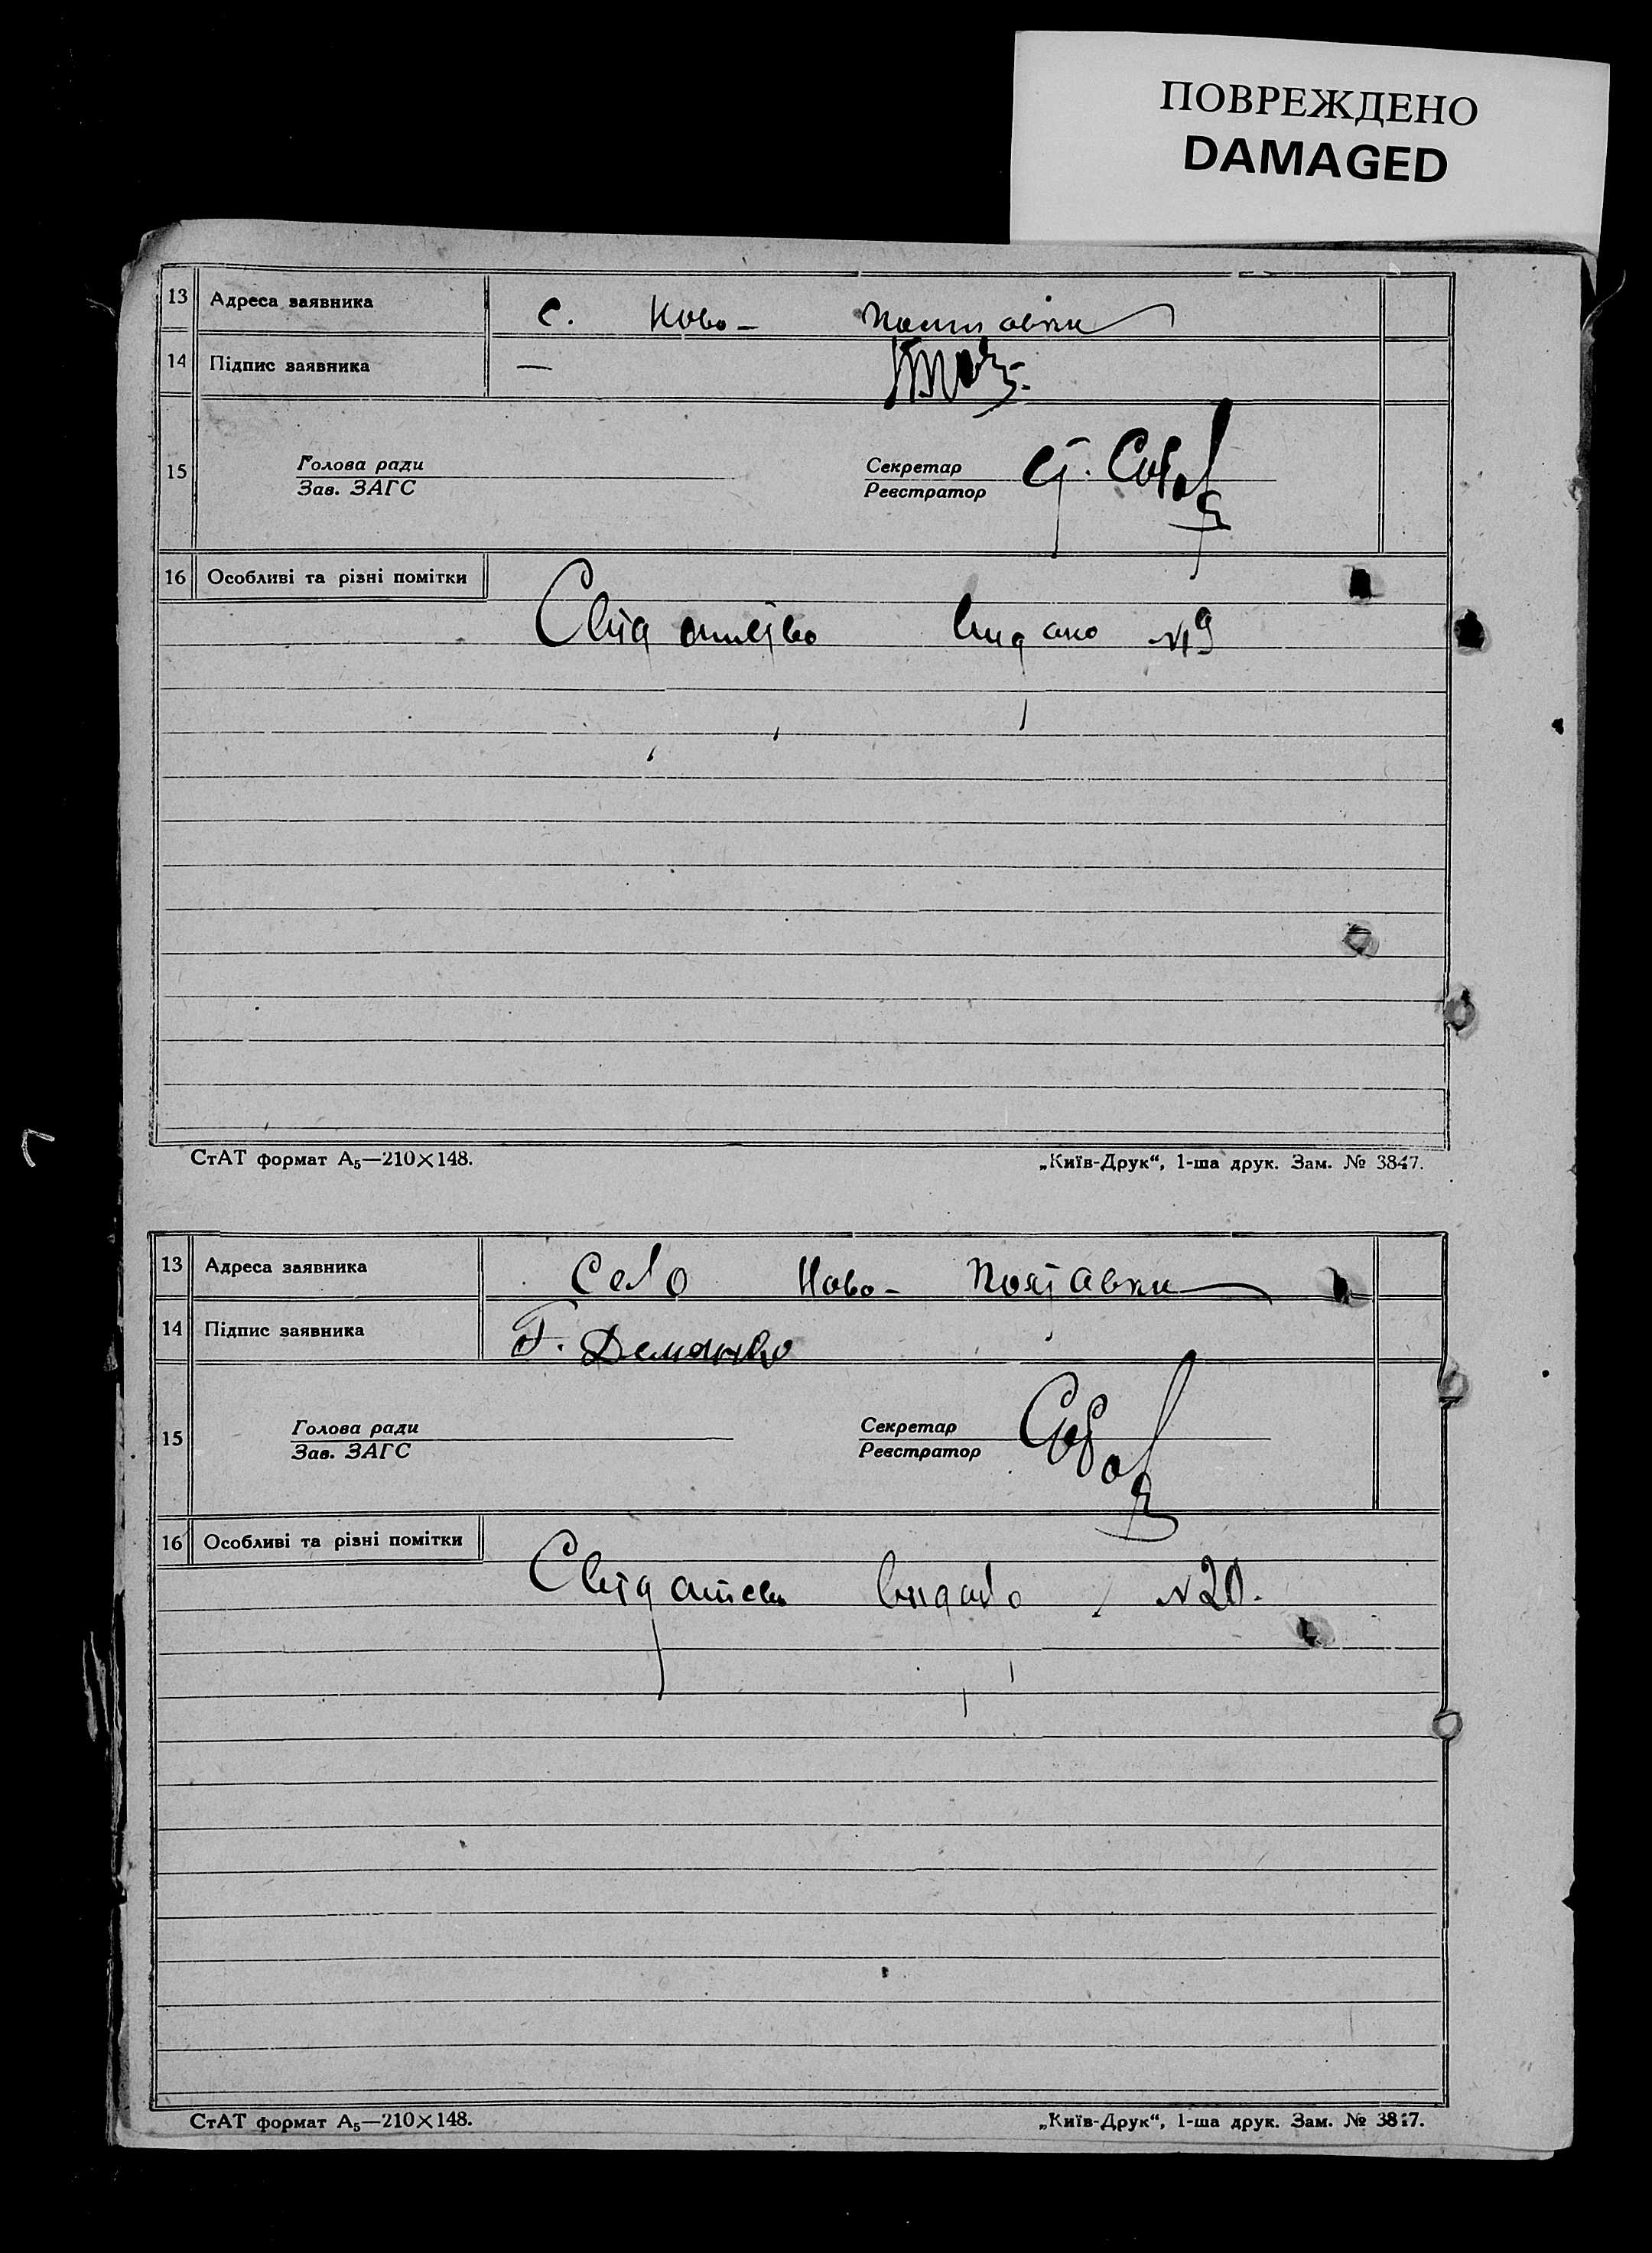 ПОВРЕЖДЕНО
DAMAGED
13 Адреса заявника с. Ново-
14 Підпис заявника —
15 Голова ради Секретар
Зав. ЗАГС Реєстратор
16 Особливі та різні помітки
видано №
СтАТ формат А₅—210×148. „Київ-Друк“, 1-ша друк. Зам. № 3847.
13 Адреса заявника Село Ново- Полтавки
14 Підпис заявника Г. Деманко
15 Голова ради Секретар
Зав. ЗАГС Реєстратор
16 Особливі та різні помітки
видано №20.
СтАТ формат А₅—210×148. „Київ-Друк“, 1-ша друк. Зам. № 3847.